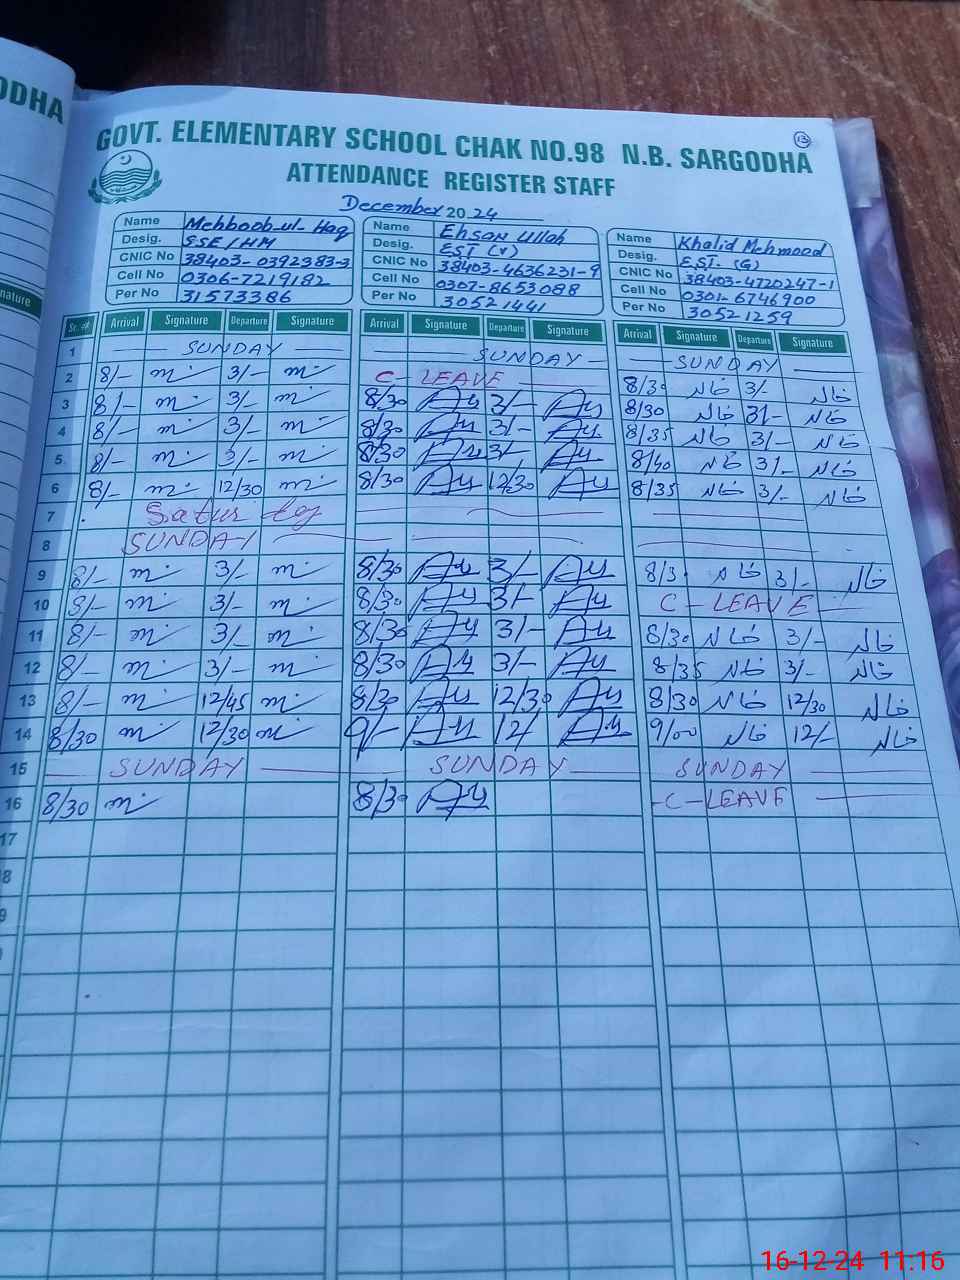 ODHA
nature
13
GOVT. ELEMENTARY SCHOOL CHAK NO.98 N.B. SARGODHA
ATTENDANCE REGISTER STAFF
December 2024
Name Mehboob-ul-Haq Name Ehsan Ullah Name Khalid Mehmood
Desig. SSE/HM Desig. EST (v) Desig. EST. (G)
CNIC No 38403-0392383-3 CNIC No 38403-4636231-9 CNIC No 38403-4720247-1
Cell No 0306-7219182 Cell No 0307-8653088 Cell No 0301-6746900
Per No 31573386 Per No 30521441 Per No 30521259
Sr. # Arrival Signature Departure Signature Arrival Signature Departure Signature Arrival Signature Departure Signature
1 SUNDAY SUNDAY SUNDAY
2 8/- m 3/- m C LEAVE 8/30 خالد 3/- خالد
3 8/- m 3/- m 8/30 3/- 8/30 خالد 3/- خالد
4 8/- m 3/- m 8/30 3/- 8/35 خالد 3/- خالد
5 8/- m 3/- m 8/30 3/- 8/40 خالد 3/- خالد
6 8/- m 12/30 m 8/30 12/30 8/35 خالد 3/- خالد
7 Saturday
8 SUNDAY
9 8/- m 3/- m 8/30 3/- 8/30 خالد 3/- خالد
10 8/- m 3/- m 8/30 3/- C-LEAVE
11 8/- m 3/- m 8/30 3/- 8/30 خالد 3/- خالد
12 8/- m 3/- m 8/30 3/- 8/35 خالد 3/- خالد
13 8/- m 12/45 m 8/30 12/30 8/30 خالد 12/30 خالد
14 8/30 m 12/30 m 9/- 12/ 9/00 خالد 12/- خالد
15 SUNDAY SUNDAY SUNDAY
16 8/30 m 8/30 C-LEAVE
17
8
9
16-12-24 11:16